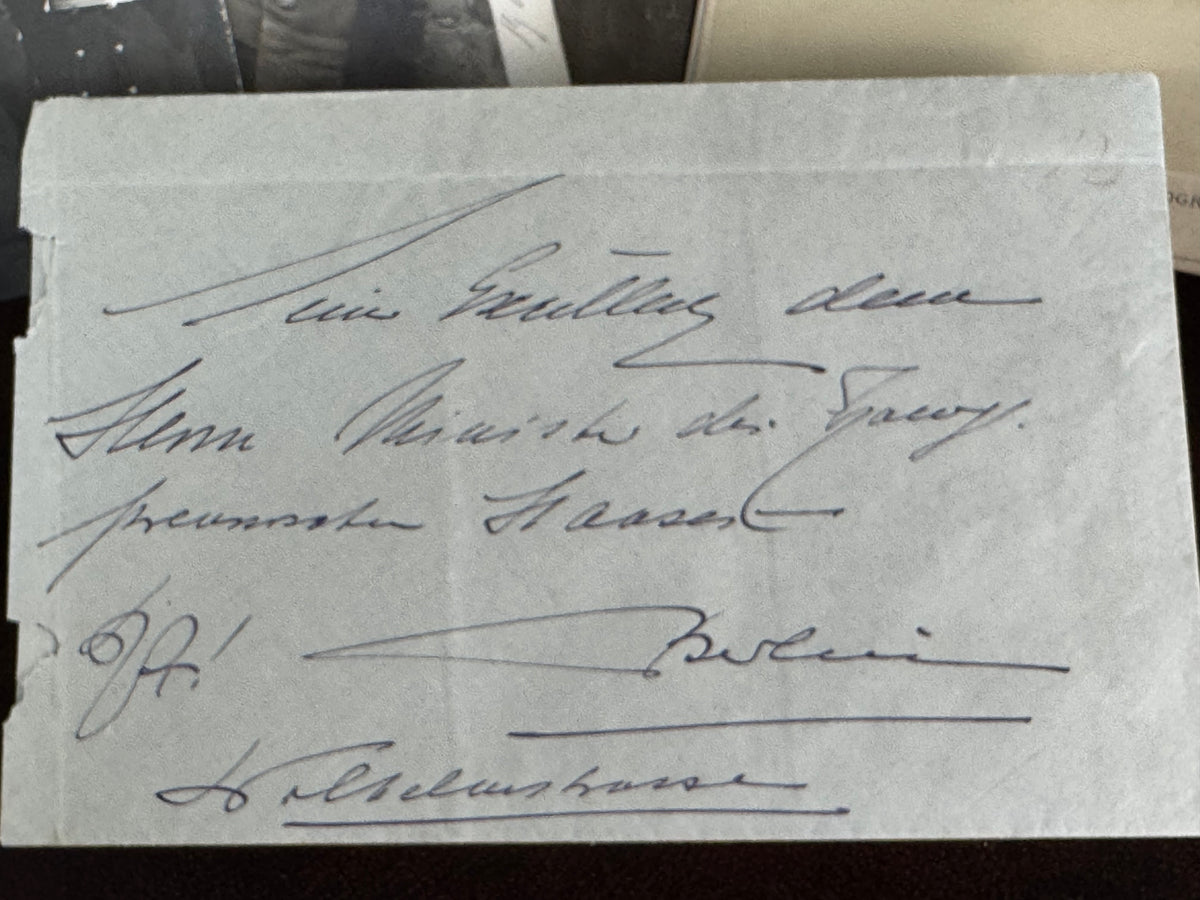 Seiner Exzellenz dem
Herrn Minister des
preussischen Hauses
Berlin
Wilhelmstrasse